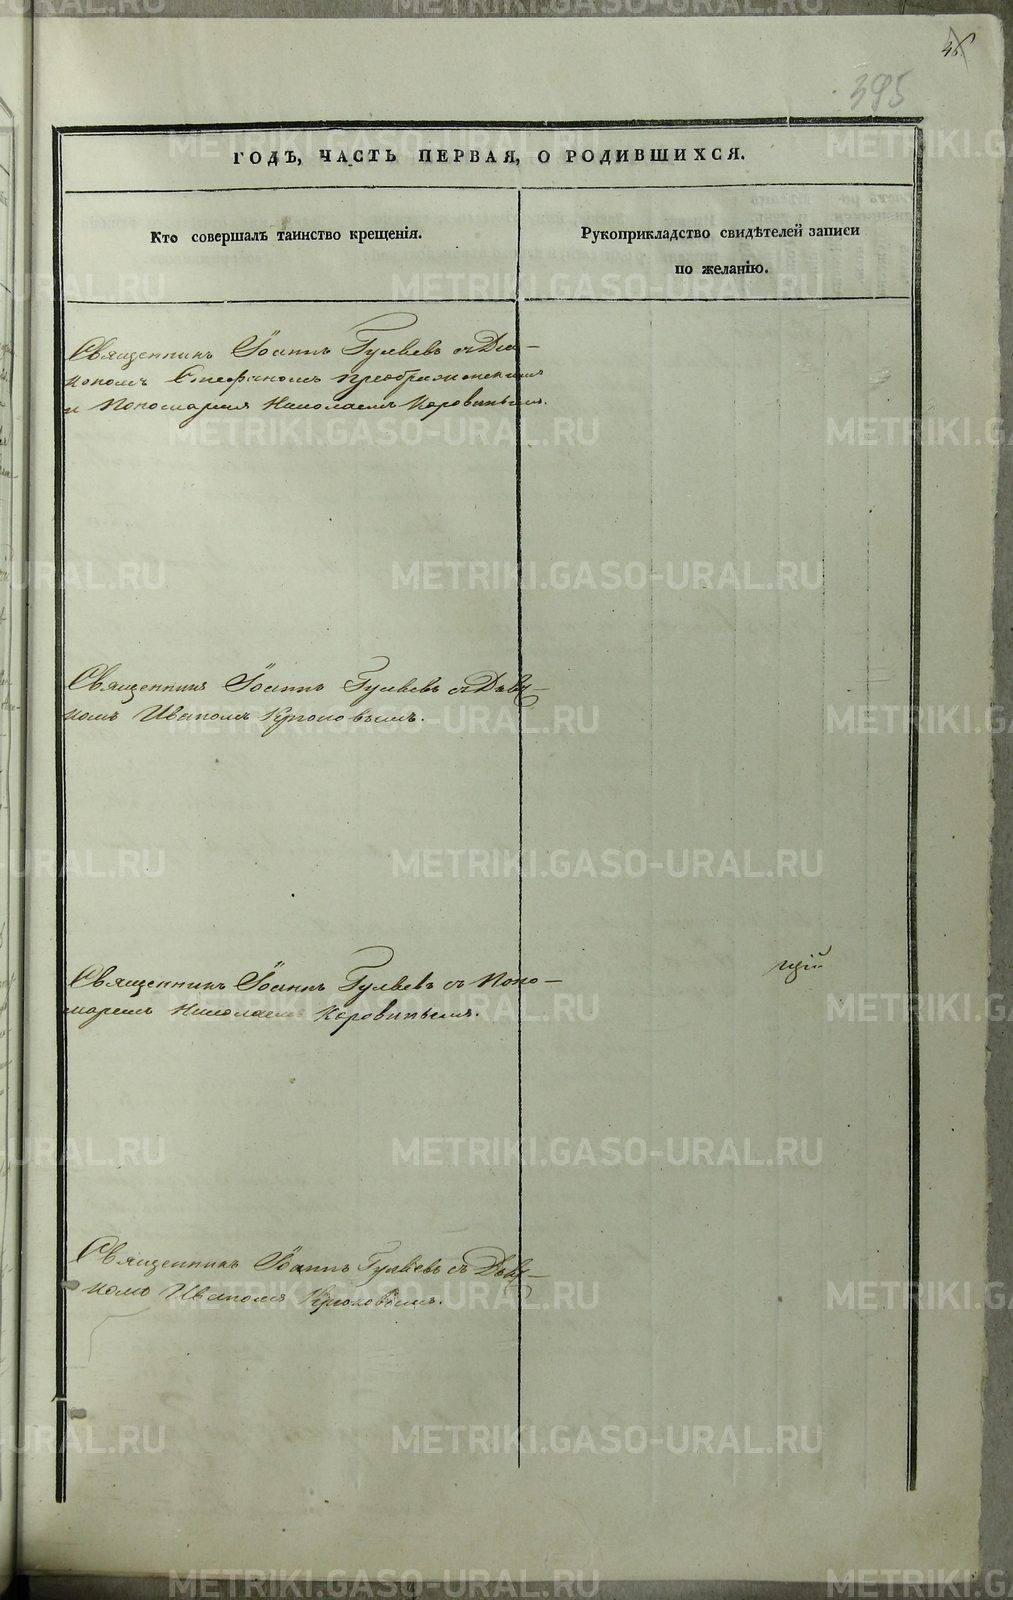 395
ГОДЪ, ЧАСТЬ ПЕРВАЯ, О РОДИВШИХСЯ.
Кто совершалъ таинство крещенія.
Рукоприкладство свидѣтелей записи
по желанію.
Священникъ Іоаннъ Гуляевъ съ Діа-
кономъ Стефаномъ Преображенскимъ
и Пономаремъ Николаемъ Коровинымъ.
Священникъ Іоаннъ Гуляевъ съ Дьяч-
комъ Иваномъ Крюковымъ.
Священникъ Іоаннъ Гуляевъ съ Поно-
маремъ Николаемъ Коровинымъ.
щій
Священникъ Іоаннъ Гуляевъ съ Дьяч-
комъ Иваномъ Крюковымъ.
METRIKI.GASO-URAL.RU